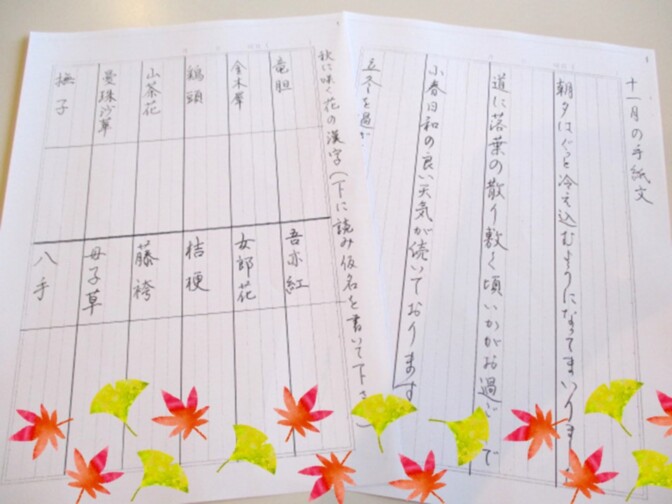 十一月の手紙文
朝夕はぐっと冷え込むようになってまいりま
道に落葉の散り敷く頃いかがお過ごしで
小春日和の良い天気が続いております
立冬を過ぎ
秋に咲く花の漢字(下に読み仮名を書いて下さ
竜胆
金木犀
鶏頭
山茶花
曼珠沙草
撫子
吾亦紅
女郎花
桔梗
藤袴
母子草
八手